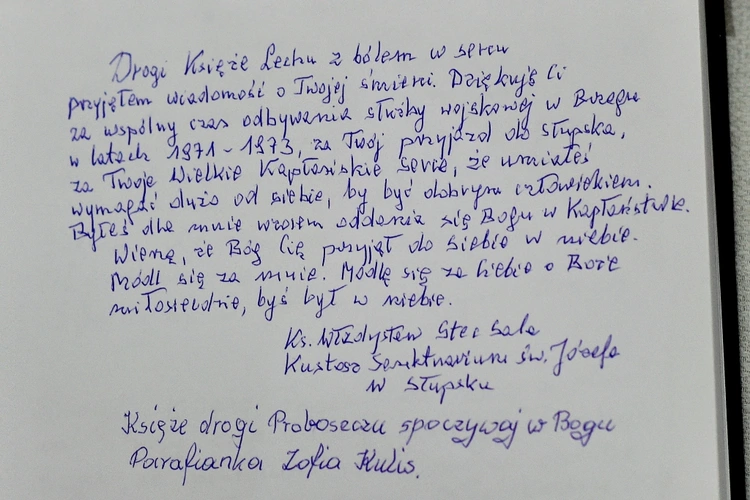 Drogi Księże Lechu z bólem w sercu
przyjąłem wiadomość o Twojej śmierci. Dziękuję Ci
za wspólny czas odbywania służby wojskowej w Brzegu
w latach 1971-1973, za Twój przyjazd do Słupska,
za Twoje Wielkie Kapłańskie Serce, że umiałeś
wymagać dużo od siebie, by być dobrym człowiekiem.
Byłeś dla mnie wzorem oddania się Bogu w Kapłaństwie.
Wierzę, że Bóg Cię przyjął do siebie w niebie.
Módl się za mnie. Modlę się za Ciebie o Boże
miłosierdzie, byś był w niebie.
Ks. Władysław Stec
Kustosz Sanktuarium św. Józefa
w Słupsku
Księże drogi Proboszczu spoczywaj w Bogu
Parafianka Zofia Kulis.